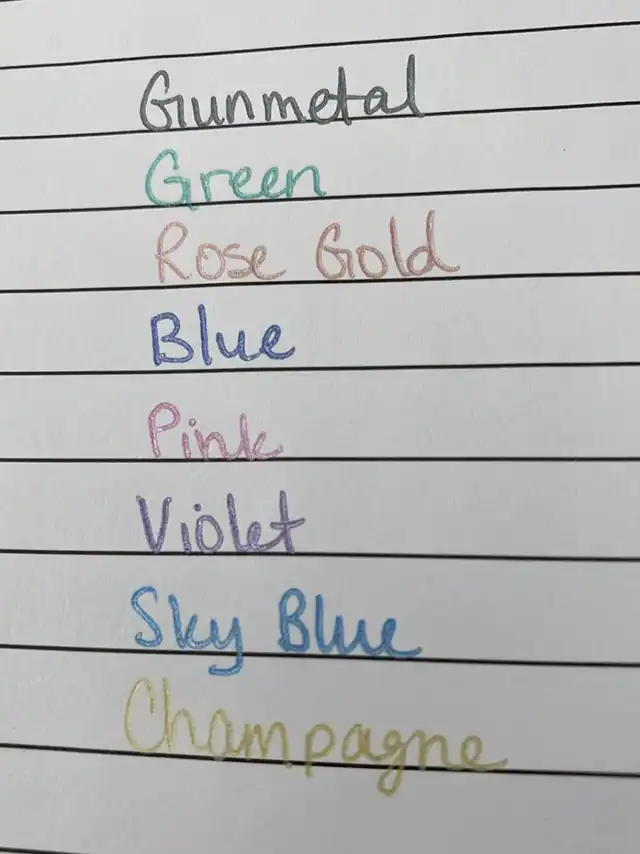 Gunmetal
Green
Rose Gold
Blue
Pink
Violet
Sky Blue
Champagne